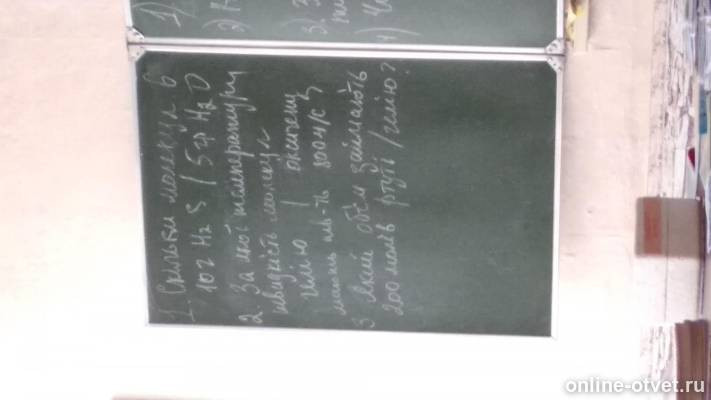 1. Скільки молекул в
10г H₂S / 5г H₂O
2 За якої температури
швидкість молекул
гелію / оксигену
800 м/с
3 Який об'єм займають
200 моль ртуті / гелію?
1)
2)
3) З
4)
online-otvet.ru